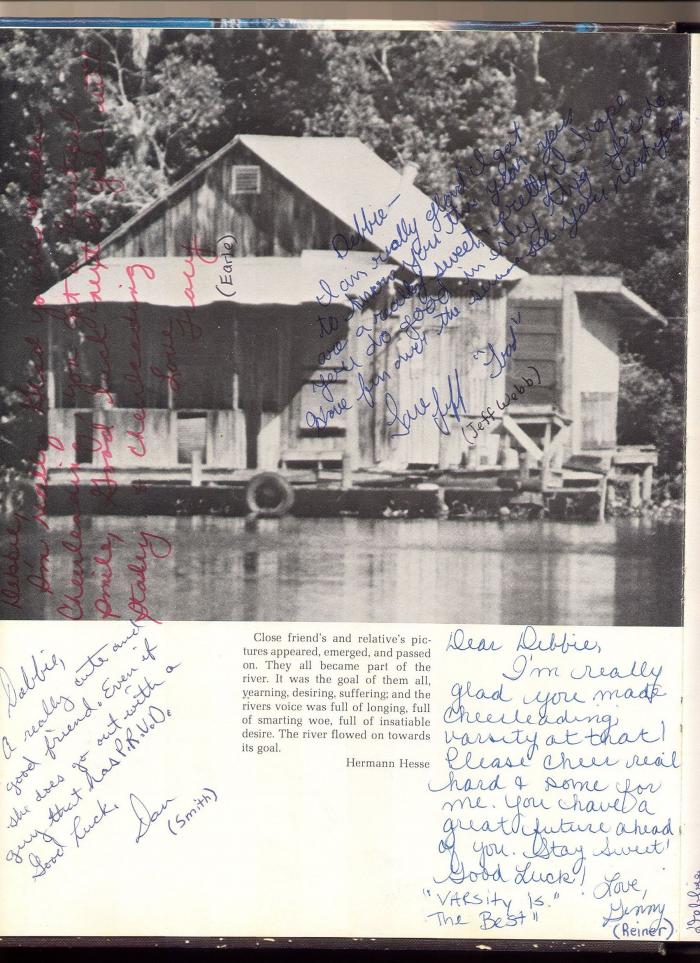 Debbie,
I'm really glad you made
Cheerleading. You got a beautiful
smile, Good luck next year w/
Stacey & cheerleading
Love
Tracy
(Earle)
Debbie –
I am really glad I got
to know you this year. You
are a really sweet, pretty I hope
you do good in every thing you do
Have fun over the summer see you next year
Love Jeff "Toad"
(Jeff Webb)
Debbie,
A really cute and
good friend. Even if
she does go out with a
guy that has P.R.V.D.
Good luck.
Dan
(Smith)
Close friend's and relative's pic-
tures appeared, emerged, and passed
on. They all became part of the
river. It was the goal of them all,
yearning, desiring, suffering; and the
rivers voice was full of longing, full
of smarting woe, full of insatiable
desire. The river flowed on towards
its goal.
Hermann Hesse
Dear Debbie,
I'm really
glad you made
cheerleading
varsity at that!
Please cheer real
hard & some for
me. You have a
great future ahead
of you. Stay Sweet!
Good Luck!
"VARSITY Is
The Best"
Love,
Ginny
(Reiner)
Debbie,